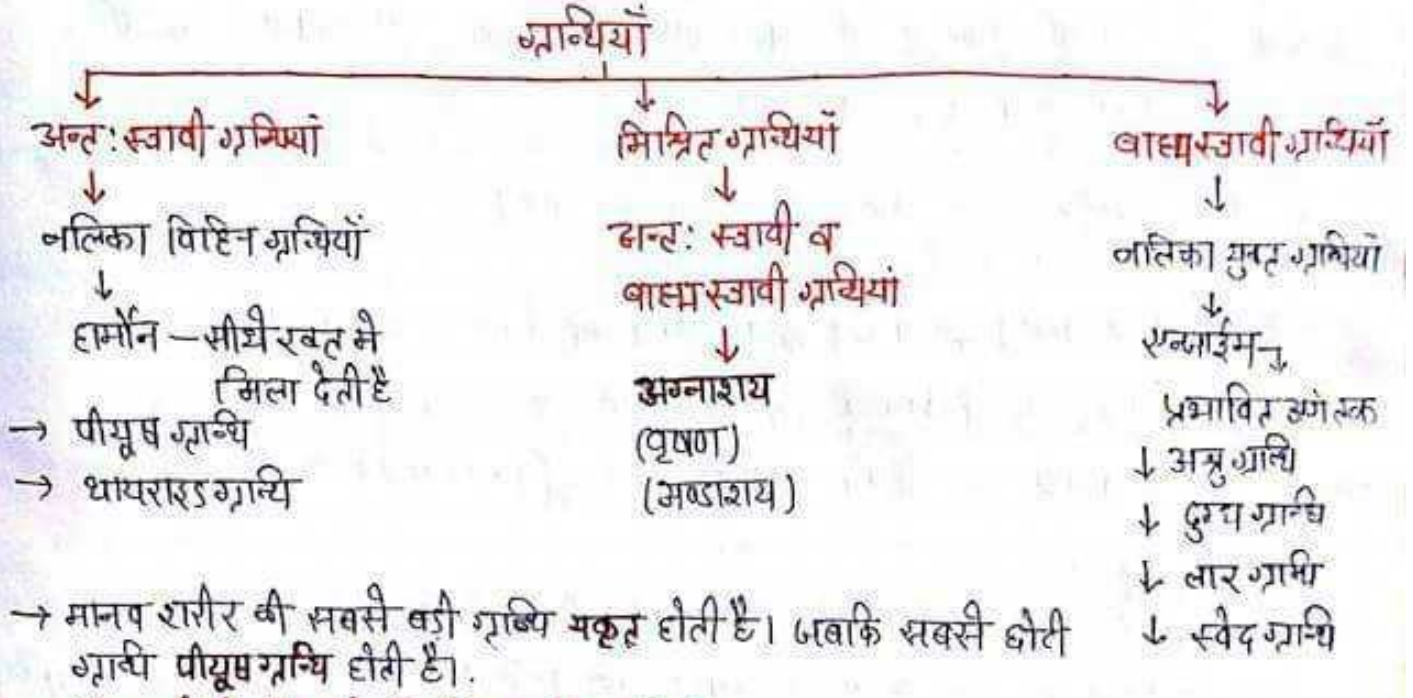 ग्रन्थियाँ
अन्त: स्त्रावी ग्रन्थियां
↓
नलिका विहिन ग्रन्थियाँ
↓
हार्मोन – सीधे रक्त मे
मिला देती है
→ पीयूष ग्रन्थि
→ थायराइड ग्रन्थि
मिश्रित ग्रन्थियाँ
↓
अन्त: स्त्रावी व
बाह्य स्त्रावी ग्रन्थियां
↓
अग्नाशय
(वृषण)
(अण्डाशय)
बाह्यस्त्रावी ग्रन्थियाँ
↓
नलिका युक्त ग्रन्थियाँ
↓
एन्जाईम
प्रभावित अंग तक
↓ अश्रु ग्रन्थि
↓ दुग्ध ग्रन्थि
↓ लार ग्रन्थि
↓ स्वेद ग्रन्थि
→ मानव शरीर की सबसे बडी ग्रन्थि यकृत होती है। जबकि सबसे छोटी
ग्रन्थि पीयूष ग्रन्थि होती है।